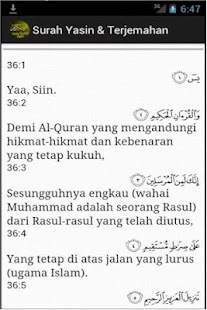 6:47
Surah Yasin & Terjemahan
36:1
يس ١
Yaa, Siin.
36:2
وَالْقُرْآنِ الْحَكِيمِ ٢
Demi Al-Quran yang mengandungi
hikmat-hikmat dan kebenaran
yang tetap kukuh,
36:3
إِنَّكَ لَمِنَ الْمُرْسَلِينَ ٣
Sesungguhnya engkau (wahai
Muhammad adalah seorang Rasul)
dari Rasul-rasul yang telah diutus,
36:4
عَلَىٰ صِرَاطٍ مُسْتَقِيمٍ ٤
Yang tetap di atas jalan yang lurus
(ugama Islam).
36:5
تَنْزِيلَ الْعَزِيزِ الرَّحِيمِ ٥